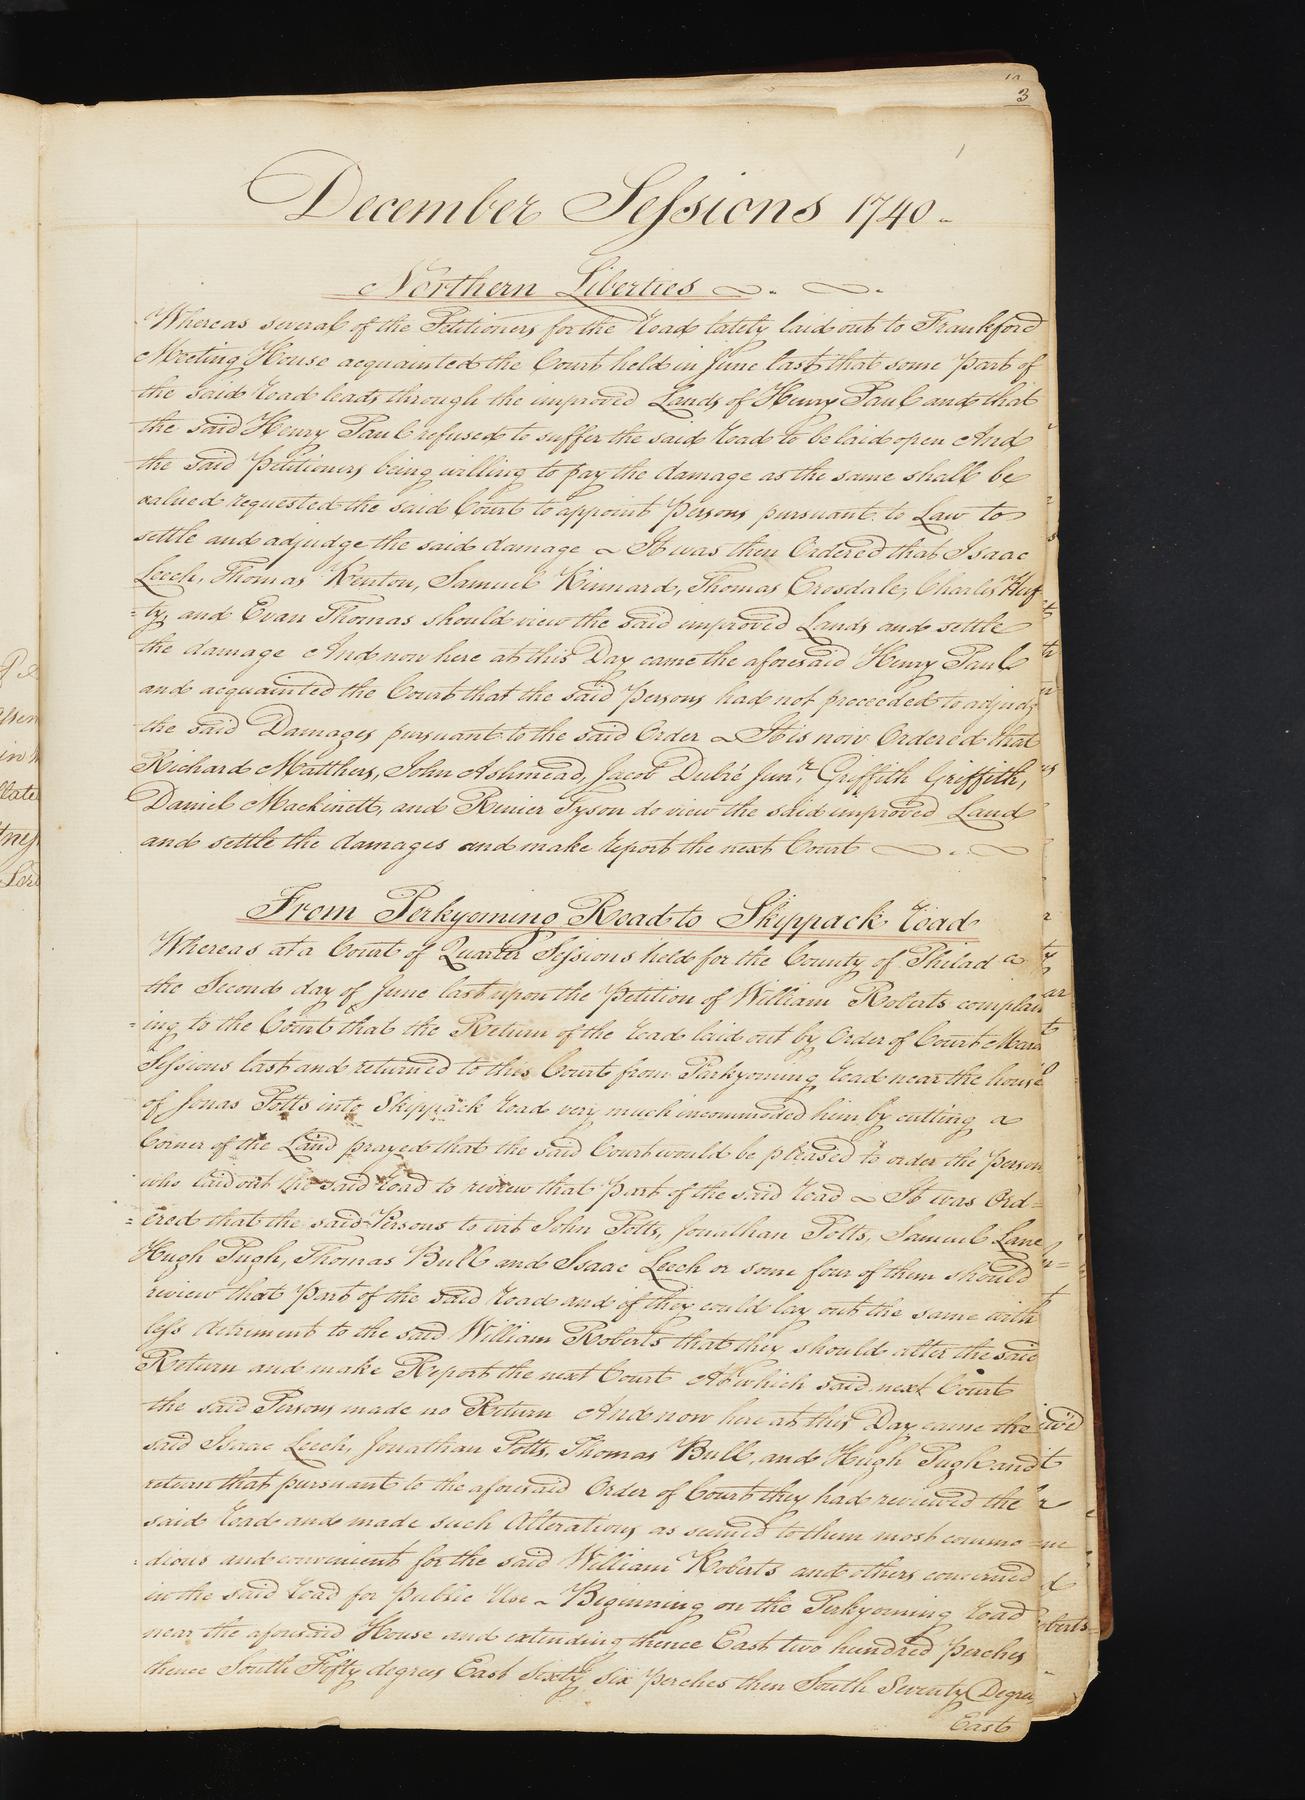 3
1
December Sessions 1740
Northern Liberties
Whereas several of the Petitioners for the Road lately laid out to Frankford
Meeting House acquainted the Court held in June last that some Part of
the said Road leads through the improved Lands of Henry Paul and that
the said Henry Paul refused to suffer the said Road to be laid open And
the said Petitioners being willing to pay the damage as the same shall be
valued requested the said Court to appoint Persons pursuant to Law to
settle and adjudge the said damage ~ It was then Ordered that Isaac
Leech, Thomas Kenton, Samuel Kinnard, Thomas Crosdale, Charles Huf
=ty and Evan Thomas should view the said improved Lands and settle
the damage And now here at this Day came the aforesaid Henry Paul
and acquainted the Court that the said Persons had not proceeded to adjudg
the said Damages pursuant to the said Order ~ It is now Ordered that
Richard Matthers, John Ashmead, Jacob Dubré Junr. Griffith Griffith,
Daniel Mackinett, and Rinier Tyson do view the said improved Land
and settle the damages and make report the next Court
From Perkyoming Road to Skippack Road
Whereas at a Court of Quarter Sessions held for the County of Philad a
the Second day of June last upon the Petition of William Roberts complain
=ing to the Court that the Return of the Road laid out by Order of Court
Sessions last and returned to this Court from Perkyoming Road near the house
of Jonas Potts into Skippack Road very much incommoded him by cutting a
Corner of the Land prayed that the said Court would be pleased to order the Person
who laid out the said Road to review that Part of the said Road ~ It was Ord=
=ered that the said Persons to wit John Potts, Jonathan Potts, Samuel Lane
Hugh Pugh, Thomas Bull and Isaac Leech or some four of them should
review that Part of the said Road and if they could lay out the same with
less detriment to the said William Roberts that they should alter the said
Return and make Report the next Court At which said next Court
the said Persons made no Return And now here at this Day came the
said Isaac Leech, Jonathan Potts, Thomas Bull, and Hugh Pugh and
return that pursuant to the aforesaid Order of Court they had reviewed the
said Road and made such Alterations as seemed to them most commo=
=dious and convenient for the said William Roberts and others concerned
in the said Road for Public Use ~ Beginning on the Perkyoming Road
near the aforesaid House and extending thence East two hundred Perches
thence South Fifty degrees East Sixty Six Perches then South Seventy Degrees
East